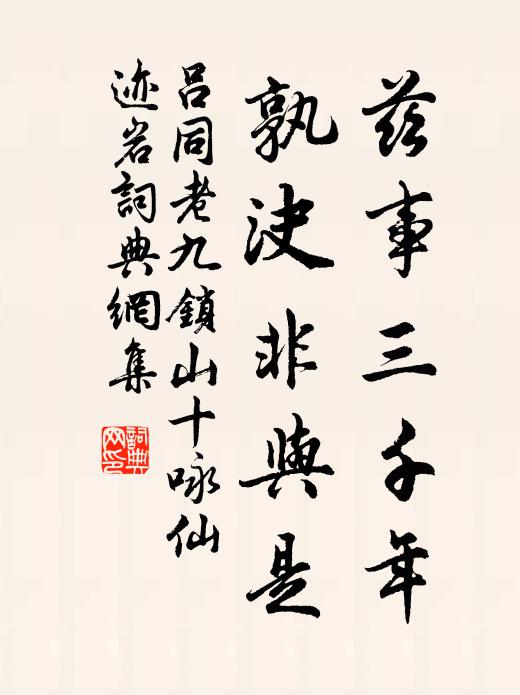 茲事三千年
孰決非與是
吕同老九鎖山十咏仙
迹岩詞典網集
詞典網印